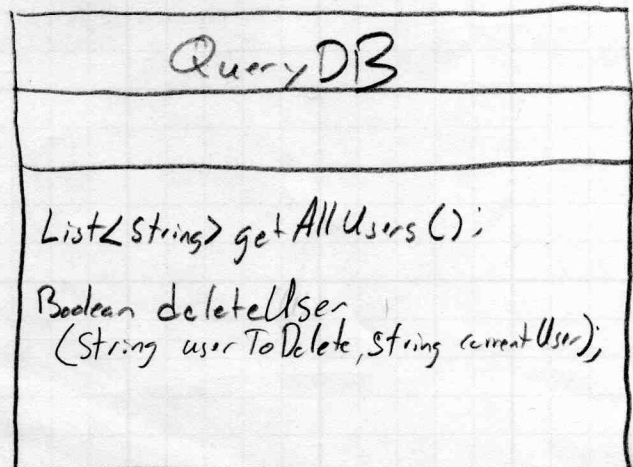 QueryDB
List<String> getAllUsers();
Boolean deleteUser
(String userToDelete, String currentUser);